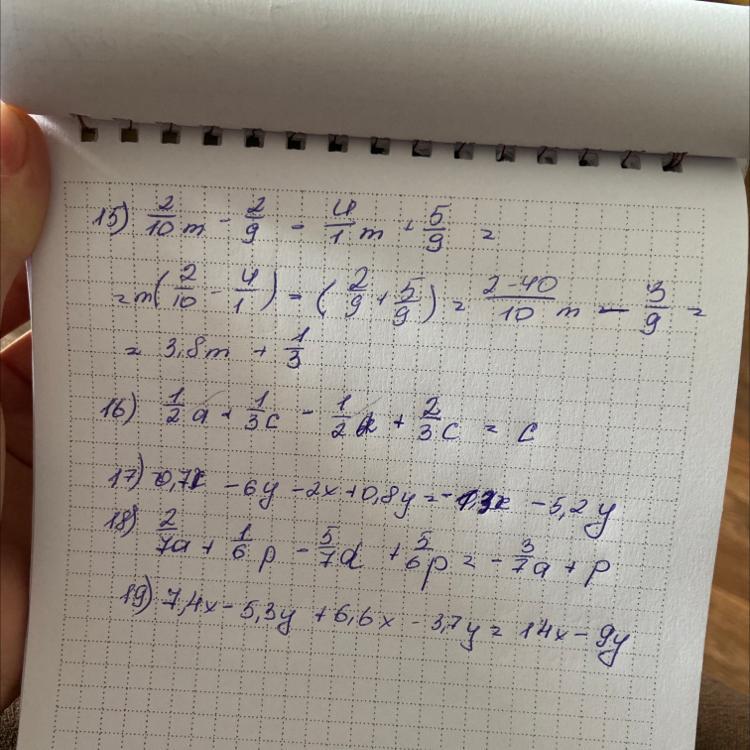 15) 2/10 m - 2/9 - 4/1 m + 5/9 =
= m(2/10 - 4/1) - (2/9 + 5/9) = 2-40/10 m - 3/9 =
= 3,8m + 1/3
16) 1/2 a + 1/3 c - 1/2 a + 2/3 c = c
17) 0,7x - 6y - 2x + 0,8y = -1,3x - 5,2y
18) 2/7 a + 1/6 p - 5/7 a + 5/6 p = - 3/7 a + p
19) 7,4x - 5,3y + 6,6x - 3,7y = 14x - 9y